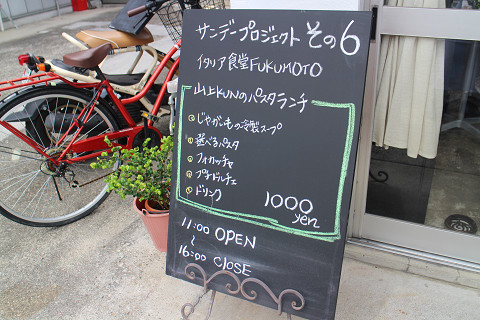 サンデープロジェクト その6
イタリア食堂FUKUMOTO
山上KUNのパスタランチ
じゃがいもの冷製スープ
選べるパスタ
フォカッチャ
プチドルチェ
ドリンク
1000
yen
11:00 OPEN
~
16:00 CLOSE